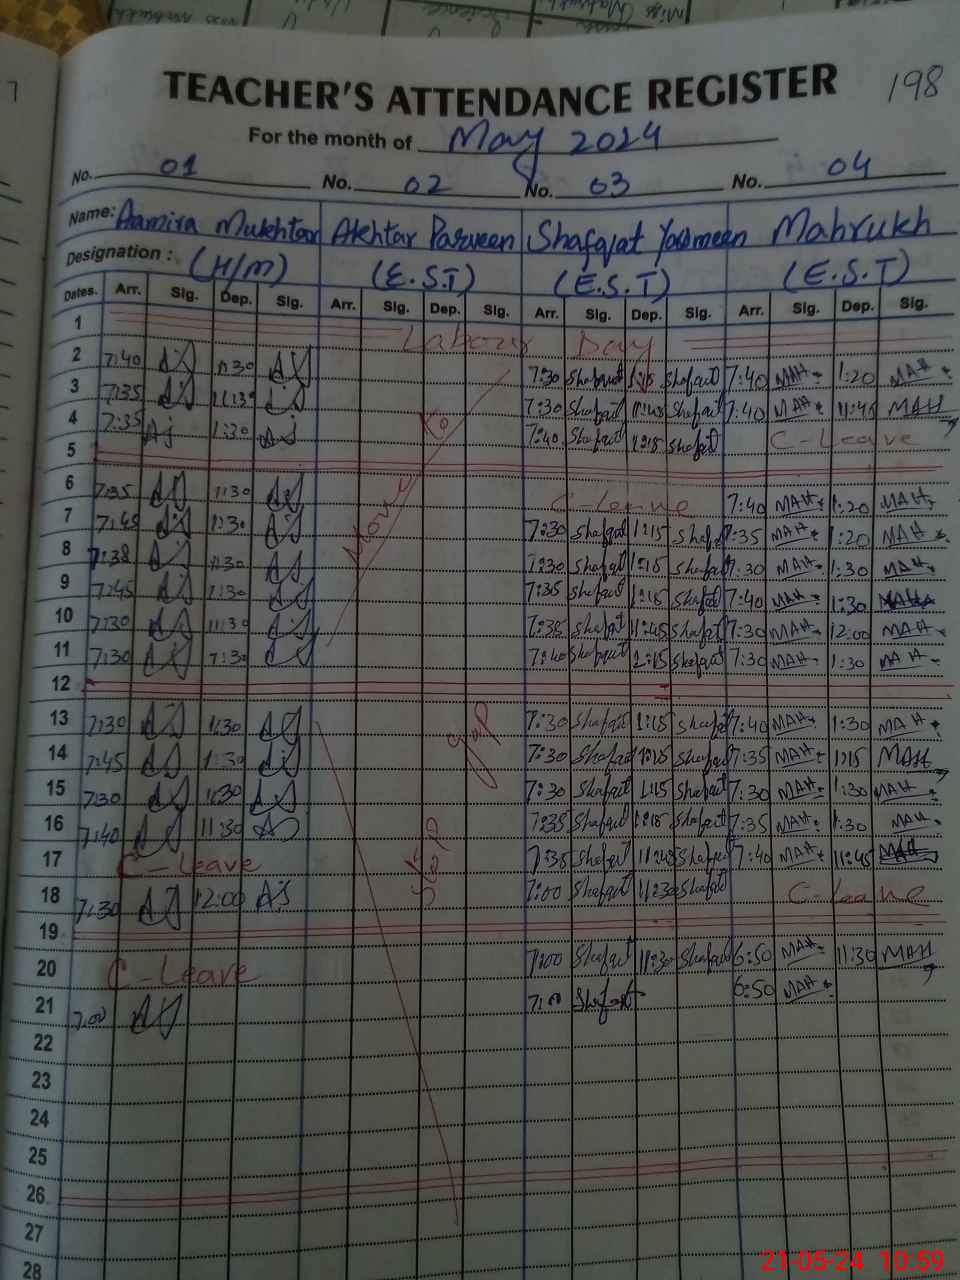 198
TEACHER'S ATTENDANCE REGISTER
For the month of May 2024
No. 01 No. 02 No. 03 No. 04
Name: Aamira Mukhtar Akhtar Parveen Shafqat Yasmeen Mahrukh
Designation: (H/M) (E.S.T) (E.S.T) (E.S.T)
Dates. Arr. Sig. Dep. Sig. Arr. Sig. Dep. Sig. Arr. Sig. Dep. Sig. Arr. Sig. Dep. Sig.
1 Labour Day
2 7:40 7:30 Shafqat 1:15 Shafqat 7:40 MAH 1:20 MAH
3 7:35 11:30 7:30 Shafqat 11:45 Shafqat 7:40 MAH 11:45 MAH
4 7:35 1:30 7:40 Shafqat 1:15 Shafqat C-Leave
5
6 7:35 1:30 C-Leave 7:40 MAH 1:20 MAH
7 7:45 1:30 7:30 Shafqat 1:15 Shafqat 7:35 MAH 1:20 MAH
8 7:38 1:30 7:30 Shafqat 1:15 Shafqat 7:30 MAH 1:30 MAH
9 7:45 1:30 7:35 Shafqat 1:15 Shafqat 7:40 MAH 1:30
10 7:30 11:30 7:35 Shafqat 11:45 Shafqat 7:30 MAH 12:00 MAH
11 7:30 1:30 7:40 Shafqat Shafqat 7:30 MAH 1:30 MAH
12
13 7:30 1:30 7:30 Shafqat 1:15 Shafqat 7:40 MAH 1:30 MAH
14 7:45 1:30 7:30 Shafqat 1:15 Shafqat 7:35 MAH 1:15 MAH
15 7:30 11:30 7:30 Shafqat 1:15 Shafqat 7:30 MAH 1:30 MAH
16 7:40 11:30 7:35 Shafqat 1:15 Shafqat 7:35 MAH 1:30 MAH
17 C-Leave 7:35 Shafqat 11:45 Shafqat 7:40 MAH 11:45
18 7:30 12:00 7:00 Shafqat 11:30 Shafqat C-Leave
19
20 C-Leave 7:00 Shafqat 11:30 Shafqat 6:50 MAH 11:30 MAH
21 7:00 7:00 Shafqat 6:50 MAH
22
23
24
25
26
27
28
21-05-24 10:59